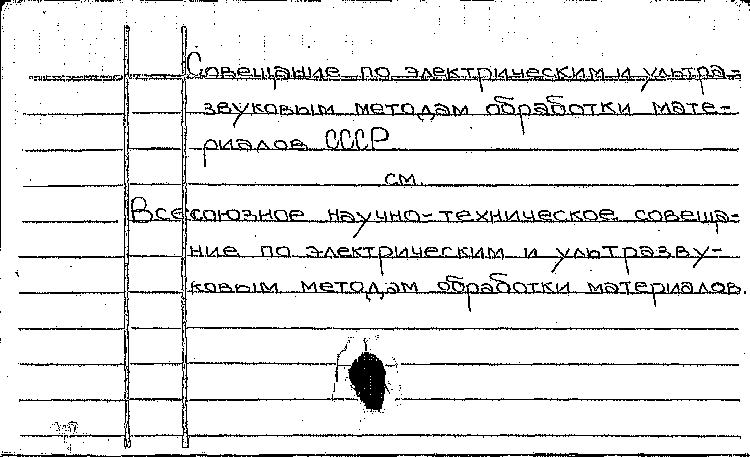 Совещание по электрическим и ультра=
звуковым методам обработки мате=
риалов СССР
см.
Всесоюзное научно=техническое совеща=
ние по электрическим и ультразву-
ковым методам обработки материалов.